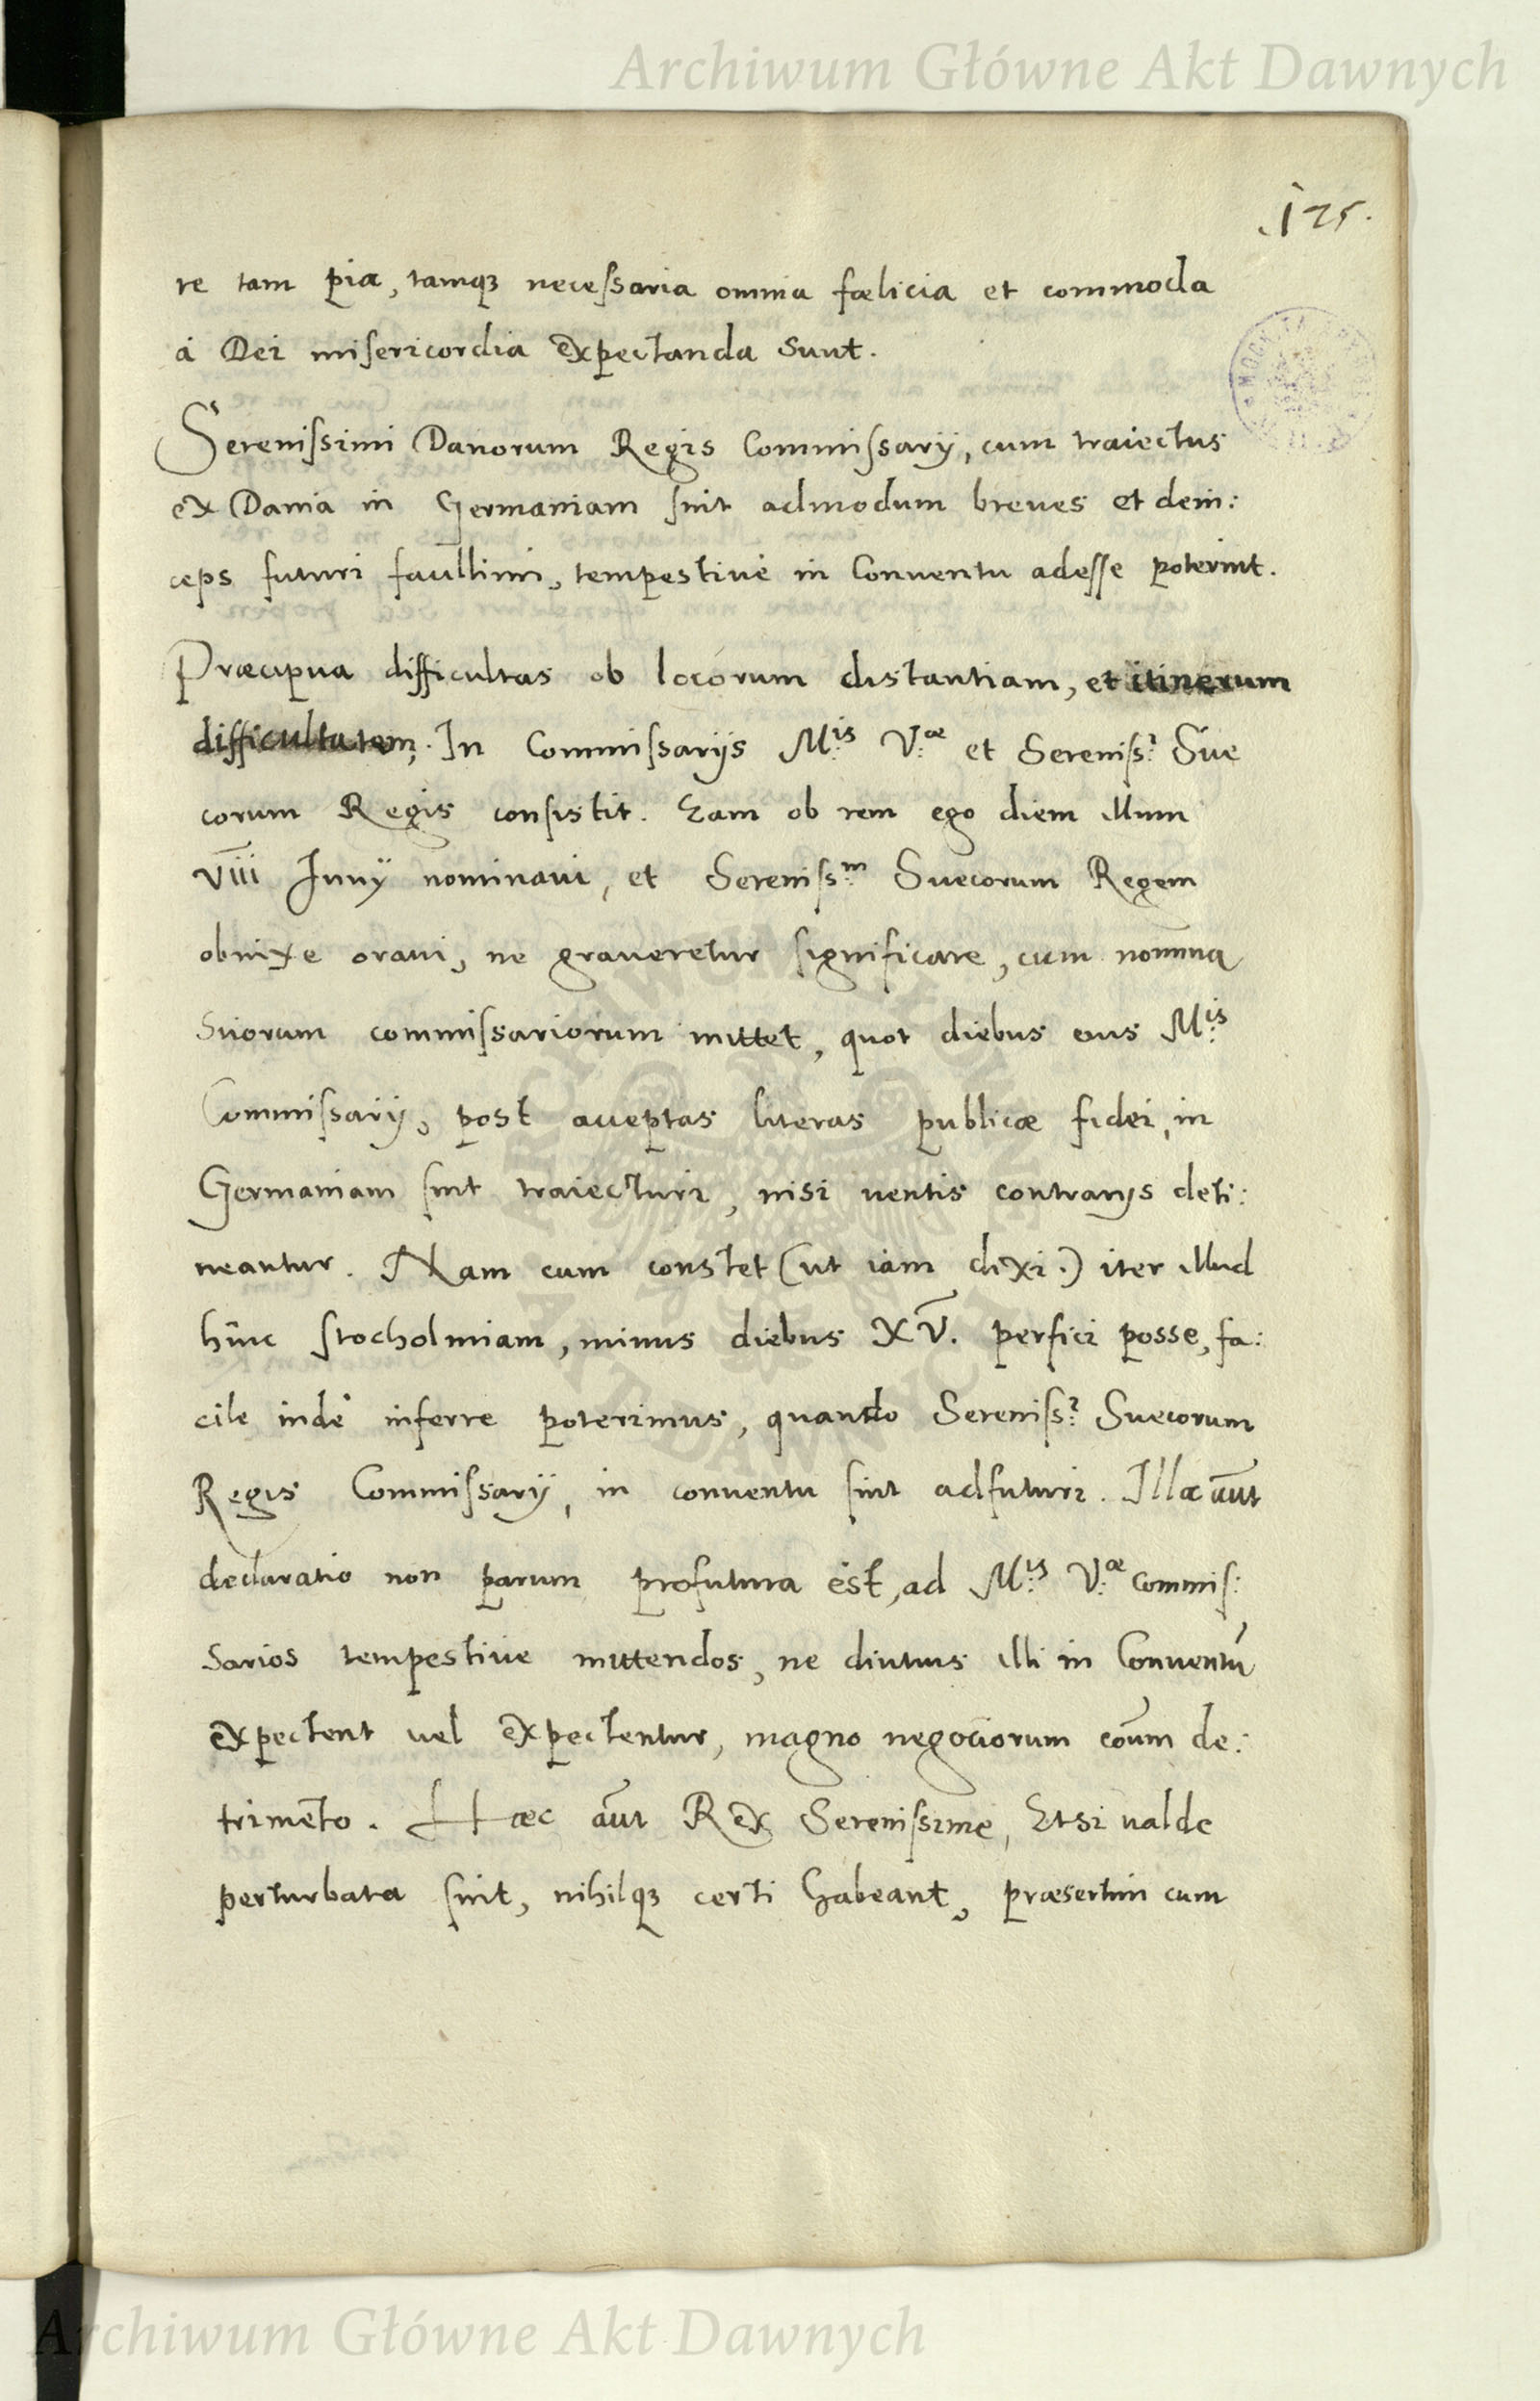 Archiwum Główne Akt Dawnych
175.
re tam pia, tamqꝫ necessaria omnia fœlicia et commoda
à Dei misericordia expectanda sunt.
Serenissimi Danorum Regis Commissarij, cum traiectus
ex Dania in Germaniam sint admodum breues et dein:
ceps futuri facillimi, tempestiuè in Conuentu adesse poterint.
Præcipua difficultas ob locorum distantiam, et itinerum
difficultatem, In Commissarijs M.is V.æ et Sereniss.i Sue
corum Regis consistit. Eam ob rem ego diem illum
VIII Junij nominaui, et Sereniss.m Suecorum Regem
obnixe oraui, ne graueretur significare, cum nomina
suorum commissariorum mittet, quot diebus eius M.is
Commissarij, post acceptas literas publicæ fidei, in
Germaniam sint traiecturi, nisi uentis contrarijs deti:
neantur. Nam cum constet (ut iam dixi.) iter illud
hinc Stocholmiam, minus diebus XV. perfici posse, fa:
cile indè inferre poterimus, quando Sereniss.i Suecorum
Regis Commissarij, in conuentu sint adfuturi. Illa aũt
declaratio non parum profutura est, ad M.is V.æ Commis:
sarios tempestiue mittendos, ne diutius illi in Conuentu
expectent uel expectentur, magno negociorum eoũm de:
trimẽto. Hæc aũt Rex Serenissime, Etsi ualde
perturbata sint, nihilqꝫ certi habeant, præsertim cum
Archiwum Główne Akt Dawnych